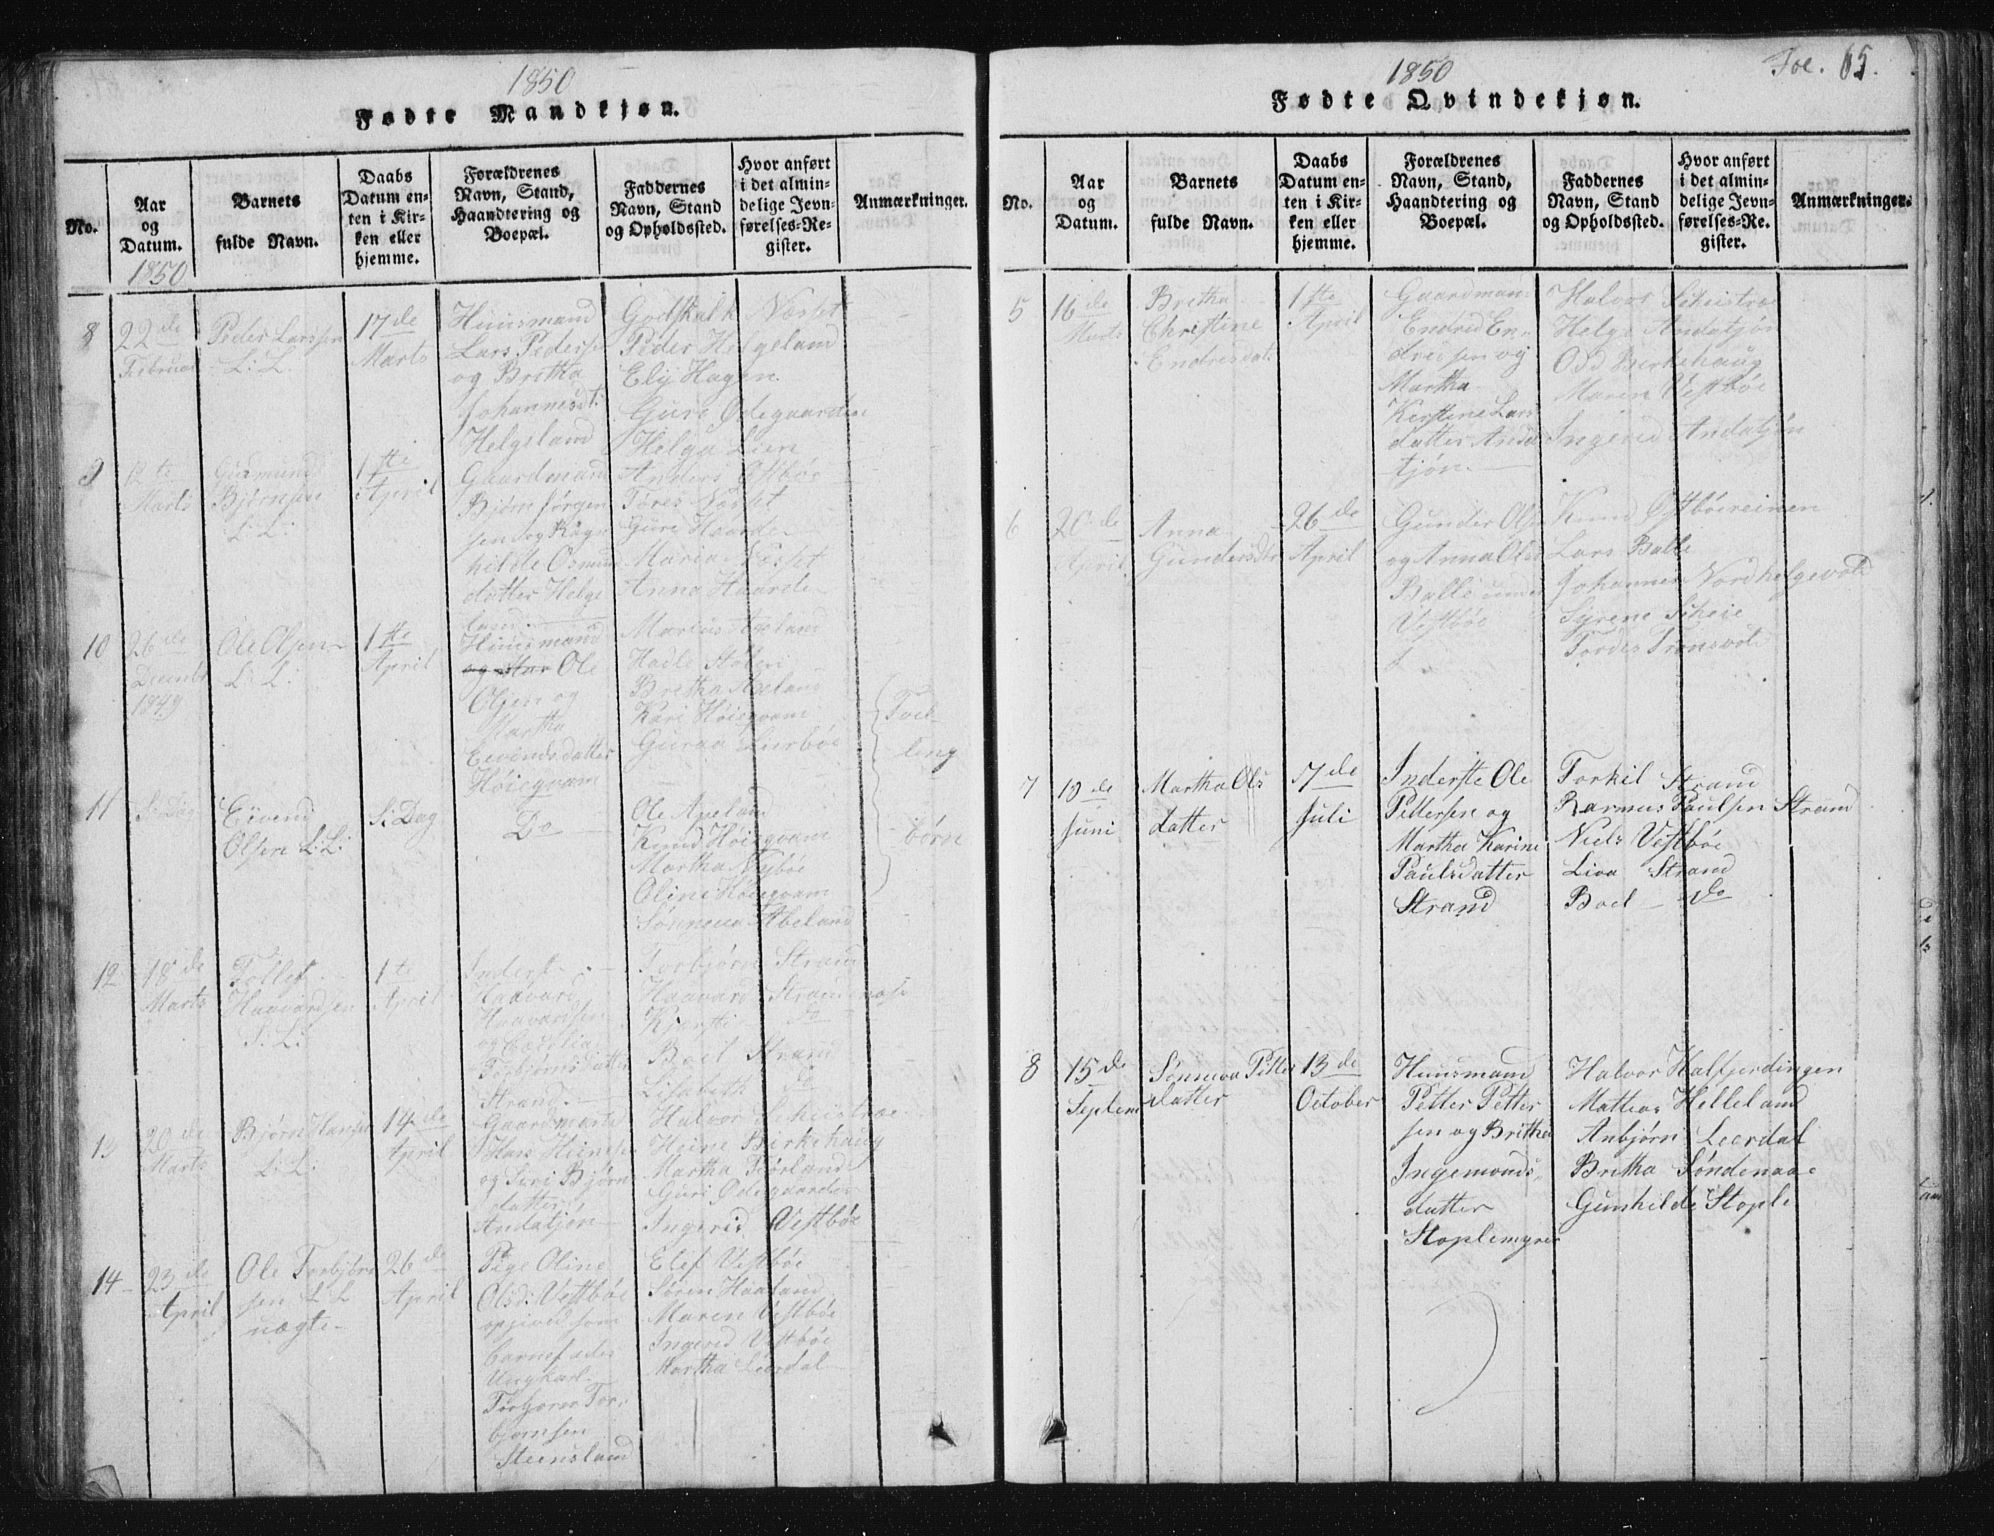 1850
Fødte Mandkjøn.
No.
Aar
og
Datum.
1850
Barnets
fulde Navn.
Daabs
Datum en-
ten i Kir-
ken eller
hjemme.
Forældrenes
Navn, Stand,
Haandtering og
Boepæl.
Faddernes
Navn, Stand
og Opholdssted.
Hvor anført
i det almin-
delige Jevn-
førelses-Re-
gister.
Anmærkninger.
8
22de
Februar
Peder Larssen
L: L.
17de
Marts
Huusmand
Lars Peders
og Britha
Johannesdt:
Helgeland
Godskalk Næset
Peder Helgeland
Eli Hagen
Guri Ødegaarden
Helga Lien
9
12te
Marts
Gudmund
Bjørnsen
L: L:
1ste
April
Gaardmand
Bjørn Jørgen
sen og Ragn
hilde Osmun
datter Helge
land.
Anders Østbøe
Tøres Næset
Guri Haarde
Maria Næset
Anna Haarde
10
26de
Decembr
1849
Ole Olsen
L: L:
1ste
April
Huusmand
Ole
Olsen og
Martha
Eivendsdatter
Høiegvam
Marius Apeland
Hadle Stølen
Bretha Apeland
Kari Høiegvam
Guraa Lurbøe
Tvil-
ling
børn
11
S: Dag
Eivend
Olsen L: L:
S: Dag
Do
Ole Apeland
Knud Høiegvam
Martha Nybøe
Oline Høiegvam
Sønneva Abeland
12
18de
Marts
Tollef
Haavardsen
L: L:
1te
April
Inderst
Haavard
Haavardsen
og Cecilia
Torbjørnsdatter
Strand.
Torbjørn Strand
Haavard Strandenase
Kjersti do
Boel Strand
Lisabeth d
13
20de
Marts
Bjørn Hansen
L: L:
14de
April
Gaardmand
Hans Heine
og Siri Bjørn
datter
Andatjøn
Halvor Scheistrae
Heine Birkehaug
Martha Fiørland
Guri Ødegaarden
Ingerid Vestbøe
14
23de
April
Ole Torbjørn
sen L L
uægte
26de
April
Pige Oline
Olsd: Vestbøe
opgived som
barnefader
Ungkarl
Torbjørn Tor-
bjørnsen
Steensland
Elef Vestbøe
Søren Haaland
Maren Vestbøe
Ingerid Vestbøe
Martha Leerdal
1850
Fol. 65.
Fødte Qvindekjøn.
No.
Aar
og
Datum.
Barnets
fulde Navn.
Daabs
Datum en-
ten i Kir-
ken eller
hjemme.
Forældrenes
Navn, Stand,
Haandtering og
Boepæl.
Faddernes
Navn, Stand
og Opholdssted.
Hvor anført
i det almin-
delige Jevn-
førelses-Re-
gister.
Anmærkninger.
5
16de
Marts
Bretha
Christine
Endresdat:
1ste
April
Gaardman
Endred En-
dresen og
Martha
Kerstine Lars
datter Anda
tjøn
Halvor Scheistra
Helge Andatjøn
Odd Birkehaug
Maren Vestbøe
Ingerid Andatjøn
6
20de
April
Anna
Gundersdtr
26de
April
Gunder Ols
og Anna Olsd
Balle under
Vestbøe
Knud Østbøereinen
Lars Balle
Johannes Nordhelgevold
Syrene Scheie
Tordes Tronsvold
7
10de
Juni
Martha Ols
datter
7de
Juli
Inderste Ole
Pettersen og
Martha Karine
Paulsdatter
Strand
Torkil Strand
Rasmus Paulsen Strand
Niels Vestbøe
Liva Strand
Boel do
8
15de
Septem
Sønneva Petter
datter
13de
October
Huusmand
Petter Petter
sen og Britha
Ingemonds-
datter
Stoplemyren
Halvor Halfjerdingen
Mathias Helleland
Anbjørn Leerdal
Bretha Søndenaae
Gunhilde Stople